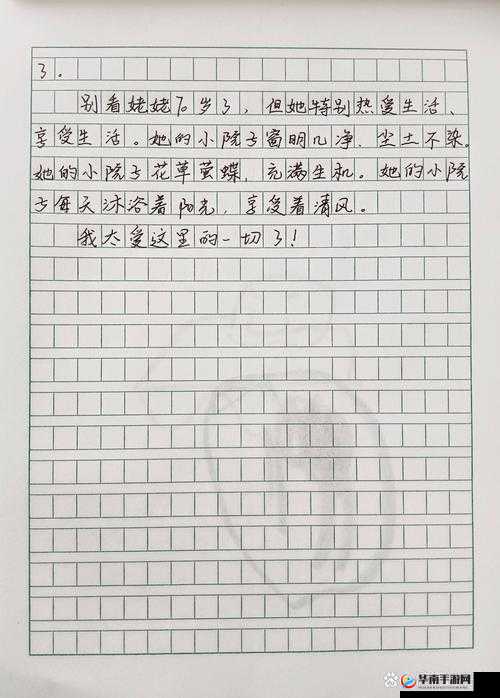 了。
别看姥姥70岁了，但她特别热爱生活、
享受生活。她的小院子窗明几净，尘土不染。
她的小院子花草莹蝶，充满生机。她的小院
子每天沐浴着阳光，享受着清风。
我太爱这里的一切了！
华南手游网